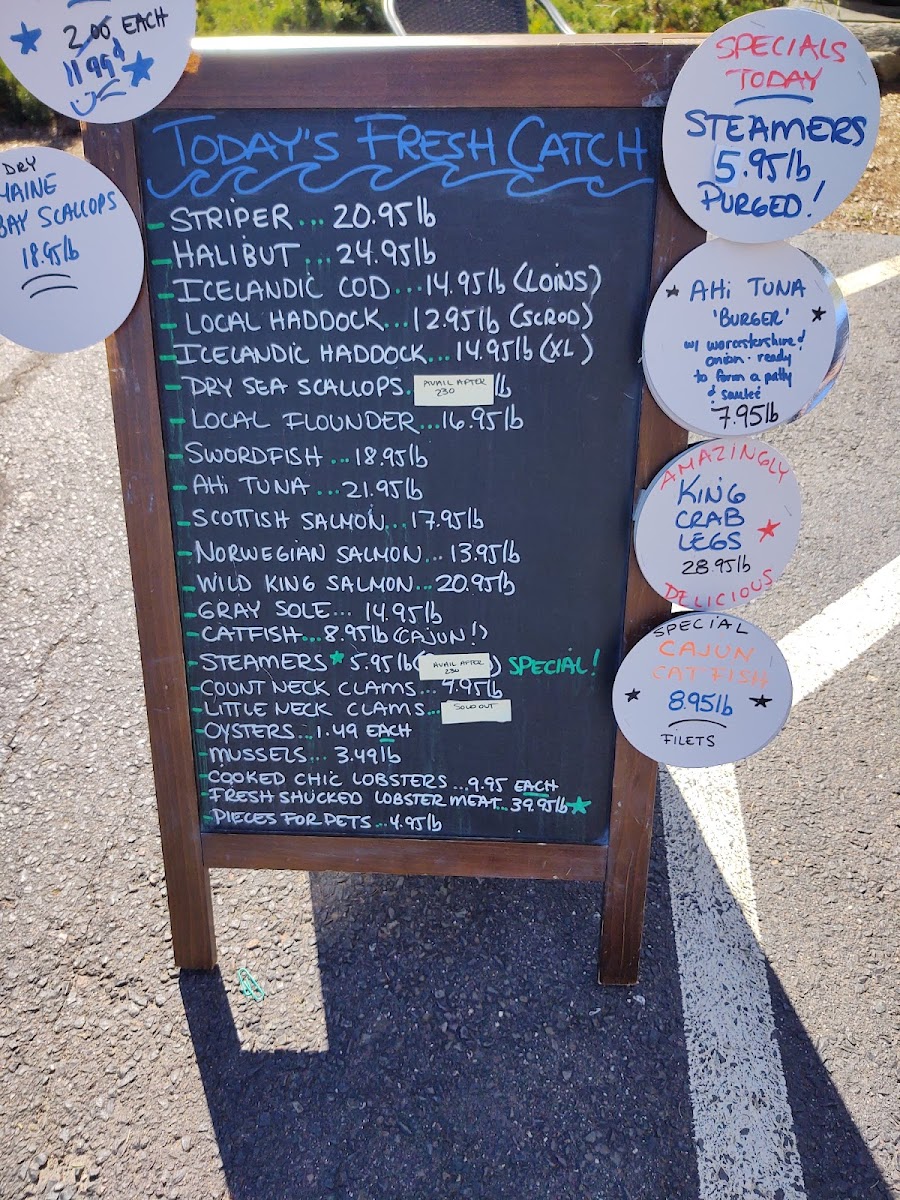 2.00 EACH
11.99 d
DRY
MAINE
BAY SCALLOPS
18.95 lb
TODAY'S FRESH CATCH
- STRIPER ... 20.95 lb
- HALIBUT ... 24.95 lb
- ICELANDIC COD ... 14.95 lb (LOINS)
- LOCAL HADDOCK... 12.95 lb (SCROD)
- ICELANDIC HADDOCK... 14.95 lb (XL)
- DRY SEA SCALLOPS. AVAIL AFTER 230 lb
- LOCAL FLOUNDER ...16.95 lb
- SWORDFISH ... 18.95 lb
- AHI TUNA ... 21.95 lb
- SCOTTISH SALMON... 17.95 lb
- NORWEGIAN SALMON... 13.95 lb
- WILD KING SALMON... 20.95 lb
- GRAY SOLE... 14.95 lb
- CATFISH... 8.95 lb (CAJUN!)
- STEAMERS ★ 5.95 lb (AVAIL AFTER 230) SPECIAL!
- COUNT NECK CLAMS... 4.95 lb
- LITTLE NECK CLAMS... SOLD OUT
- OYSTERS... 1.49 EACH
- MUSSELS... 3.49 lb
- COOKED CHIC LOBSTERS ... 9.95 EACH
- FRESH SHUCKED LOBSTER MEAT... 39.95 lb ★
- PIECES FOR PETS... 4.95 lb
SPECIALS
TODAY
STEAMERS
5.95 lb
PURGED!
AHI TUNA
'BURGER'
w/ worcestershire &
onion. ready
to form a patty
& sauteé
7.95 lb
AMAZINGLY
KING
CRAB
LEGS
28.95 lb
DELICIOUS
SPECIAL
CAJUN
CATFISH
8.95 lb
FILETS